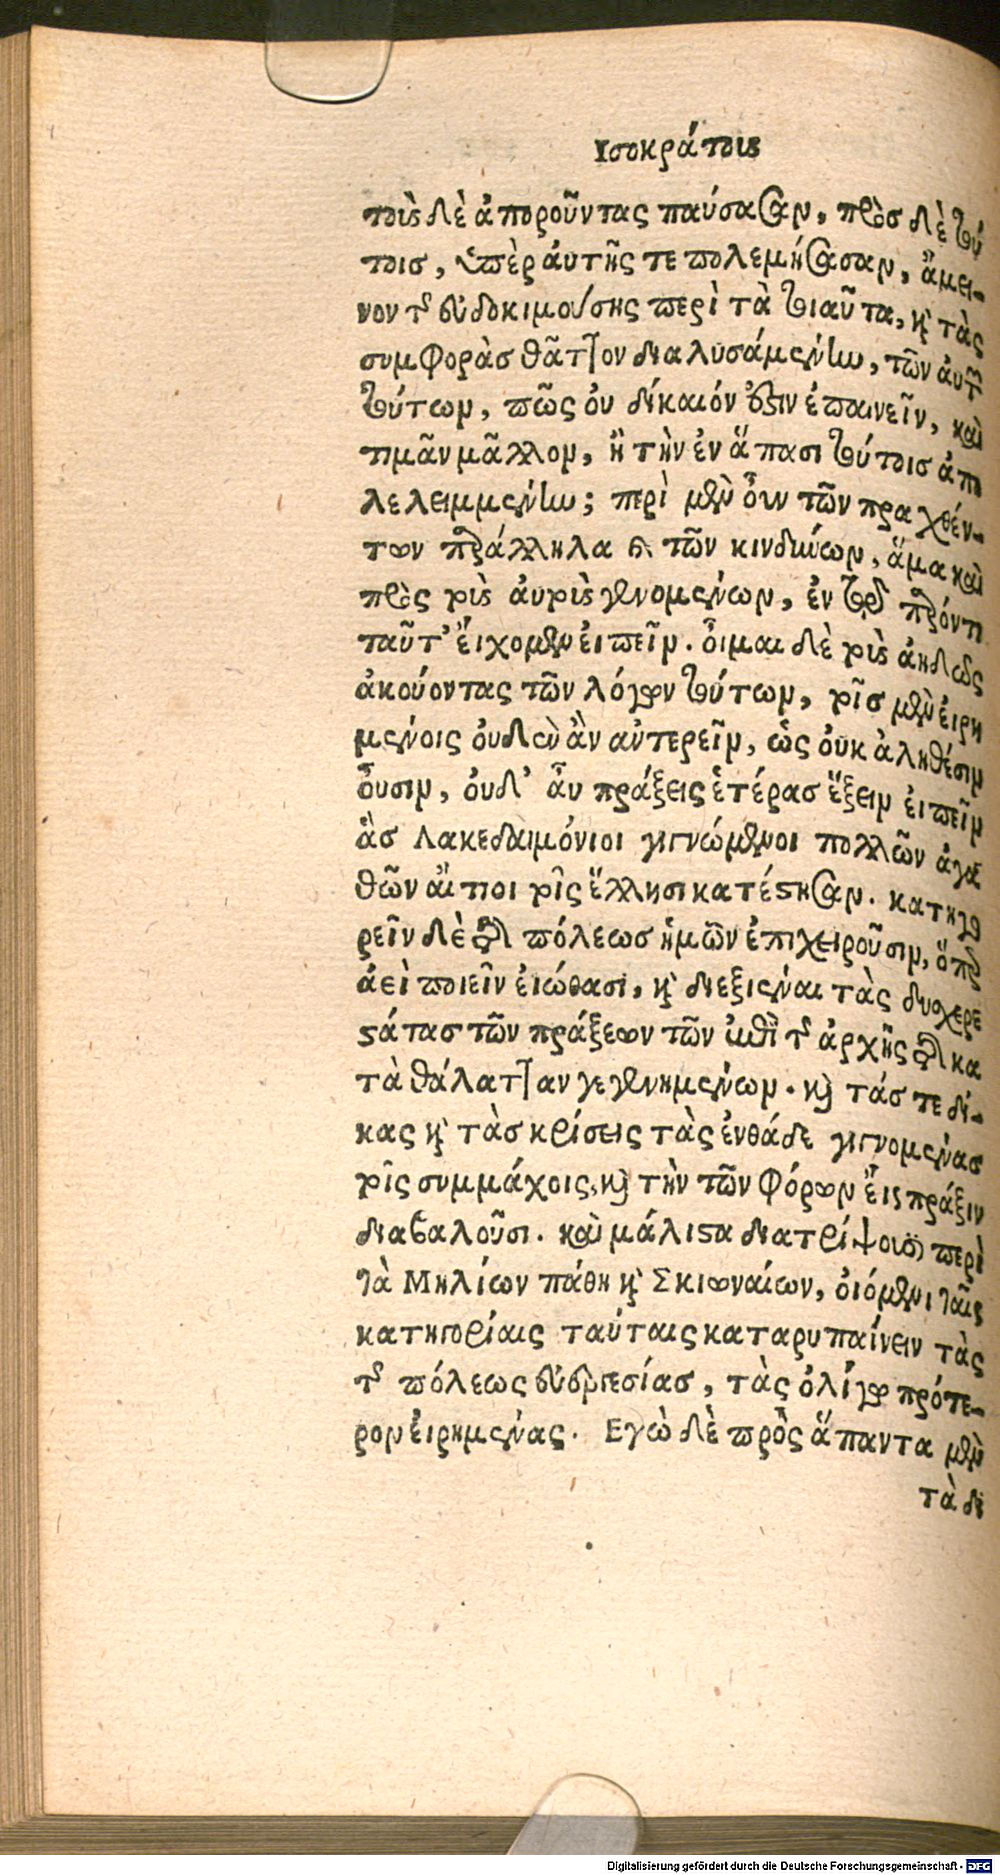 Ισοκράτους
τοὺς δὲ ἀποροῦντας παύσασαν, πρὸς δὲ τού
τοις, ὑπὲρ ἀυτῆς τε πολεμήσασαν, ἄμει-
νον τῆς ἐυδοκιμούσης περὶ τὰ τοιαῦτα, κỳ τὰς
συμφορὰς θᾶττον διαλυσάμενην, τῶν ἀυτῶν
τούτων, πῶς ὀυ δίκαιόν ἐστιν ἐπαινεῖν, καὶ
τιμᾶν μᾶλλον, ἢ τὴν ἐν ἅπασι τούτοις ἀπο
λελειμμένην; περὶ μὲν ὀ͂υν τῶν πραχθέν-
των παράλληλα καὶ τῶν κινδύνων, ἅμα καὶ
πρὸς τοὺς ἀυτοὺς γενομένων, ἐν τῷ παρόντι
ταῦτ' ἔιχομεν ἐιπεῖν. ὀ͂ιμαι δὲ τοὺς ἀηδῶς
ἀκούοντας τῶν λόγων τούτων, τοῖς μὲν ἐιρη
μένοις ὀυδὲν ἂν ἀντερεῖν, ὡς ὀυκ ἀληθέσιν
ὀ͂υσιν, ὀυδ' ἂν πράξεις ἑτέρας ἕξειν ἐιπεῖν
ἃς Λακεδαιμόνιοι γιγνώμενοι πολλῶν ἀγα
θῶν ἄιτιοι τοῖς ἕλλησι κατέστησαν. κατηγο
ρεῖν δὲ τῆς πόλεως ἡμῶν ἐπιχειροῦσιν, ὅπερ
ἀεὶ ποιεῖν ἐιώθασι, καὶ διεξιέναι τὰς δυσχερε
στάτας τῶν πράξεων τῶν ἐπὶ τῆς ἀρχῆς τῆς κα
τὰ θάλατταν γεγενημένων. καὶ τάς τε δί-
κας καὶ τὰς κρίσεις τὰς ἐνθάδε γιγνομένας
τοῖς συμμάχοις, καὶ τὴν τῶν φόρων ἔισπραξιν
διαβαλοῦσι. καὶ μάλιστα διατρίψουσι περὶ
τὰ Μηλίων πάθη καὶ Σκιωναίων, ὀιόμενοι ταῖς
κατηγορίαις ταύταις καταρυπαίνειν τὰς
τῆς πόλεως ἐυεργεσίας, τὰς ὀλίγῳ πρότε-
ρον ἐιρημένας. Εγὼ δὲ πρὸς ἅπαντα μὲν
τὰ δι
Digitalisierung gefördert durch die Deutsche Forschungsgemeinschaft - DFG